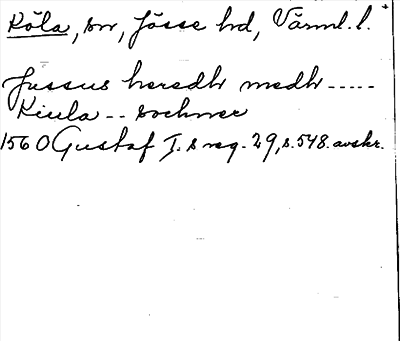 Köla, sn, Jösse hd, Värml. l.
Jussus heredh medh -----
Kiula -- sochner
1560 Gustaf I.s reg. 29, s. 548. avskr.